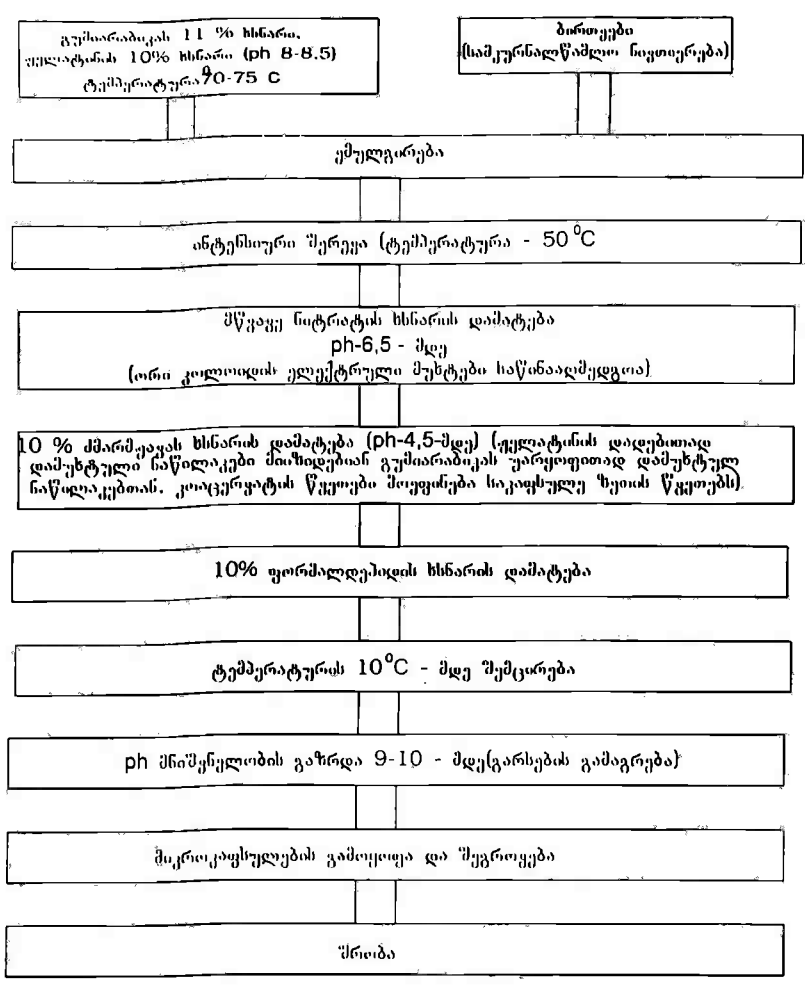 გუმიარაბიკას 11 % ხსნარი.
ჟელატინის 10% ხსნარი (ph 8-8.5)
ტემპერატურა 70-75 C
ბირთვები
(სამკურნალწამლო ნივთიერება)
ემულგირება
ინტენსიური შერევა (ტემპერატურა - 50 ⁰C
მწვავე ნიტრატის ხსნარის დამატება
ph-6,5 - მდე
(ორი კოლოიდის ელექტრული მუხტები საწინააღმდეგოა)
10 % ძმარმჟავას ხსნარის დამატება (ph-4,5-მდე) (ჟელატინის დადებითად
დამუხტული ნაწილაკები მიიზიდებიან გუმიარაბიკას უარყოფითად დამუხტულ
ნაწილაკებთან. კოაცერვატის წვეთები მოეფინება საკაფსულე ზეთის წვეთებს)
10% ფორმალდეჰიდის ხსნარის დამატება
ტემპერატურის 10⁰C - მდე შემცირება
ph მნიშვნელობის გაზრდა 9-10 - მდე(გარსების გამაგრება)
მიკროკაფსულების გამოყოფა და შეგროვება
შრობა